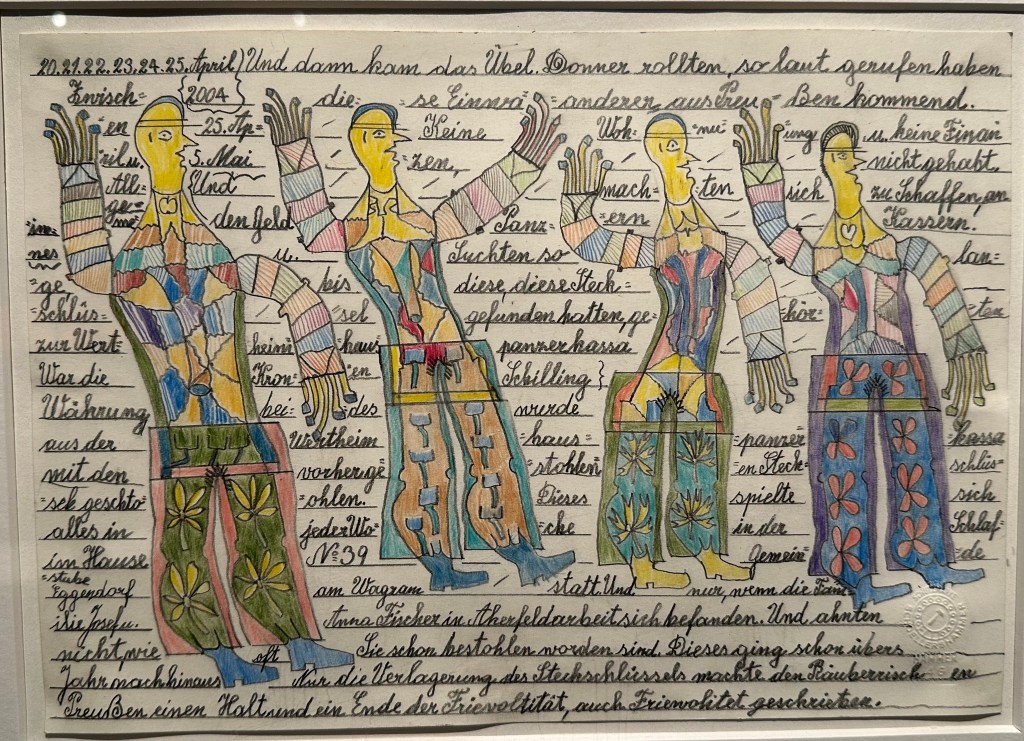 20.21.22.23.24.25. April) Und dann kam das Übel. Donner rollten, so laut gerufen haben
Zwisch= 2004 die= =se Einwa= =anderer, aus Preu= ßen kommend.
=en 25. Ap= Keine Woh= =nu= =ung u. keine Finan
=ril u. 5. Mai =zen, nicht gehabt,
All= Und mach= =ten sich zu Schaffen, an
=ge= =me= den Geld Panz= =ern Kassern.
=in= u. Suchten so lan=
=nes
=ge bis diese diese Steck=
=schlüs= =sel gefunden hatten, ge= =hör= =ter
zur Wert= heim= haus panzerkassa
War die Kron= =en Schilling
Währung bei= des wurde
aus der Wertheim haus= =panzer= =kassa
mit den vorher ge= =stohlen =en Steck= schlüs=
=sel geschto =ohlen. Dieses spielte sich
alles in jeder Wo= =che in der Schlaf=
im Hause No 39 gemein= =de
=stube
Eggendorf am Wagram statt. Und nur, wenn die Fam=
ilie Josef u. Anna Fischer in Aherfeldarbeit sich befanden. Und ahnten
nicht, wie oft Sie schon bestohlen worden sind. Dieses ging schon übers
Jahr nach hinaus Nur die Verlagerung des Stechschlüssels machte den Räuberrisch en
Preußen einen Halt und ein Ende der Frievoltität, auch Friewohltet geschrieben.